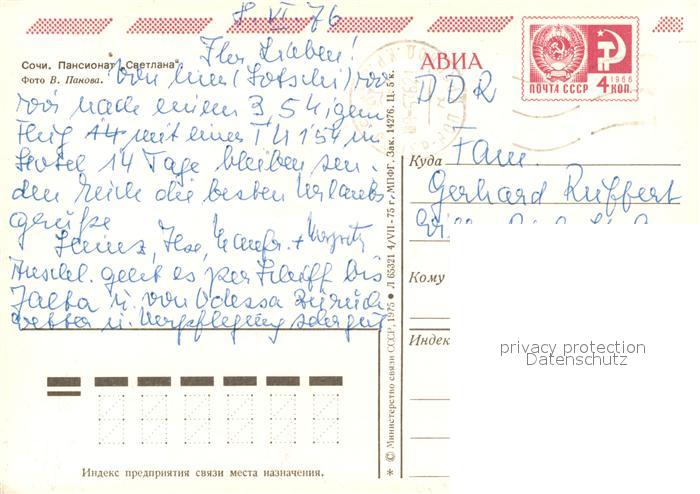 8. VI. 76
Сочи. Пансионат "Светлана"
Фото В. Панова.
Ihr Lieben!
Von hier (Sotschi) wo
wir nach einem 3,5 stigem
Flug mit einer TU 154 im
Hotel 14 Tage bleiben sen-
den Euch die besten Urlaubs
grüße
Heinz, Ilse, Manfr. + Margitta
Anschl. geht es per Schiff bis
Jalta u. von Odessa zurück
Wetter u. Verpflegung sehr gut
АВИА
ПОЧТА СССР
1966
4 КОП.
DDR
Куда
Fam.
Gerhard Ruffert
Кому
Индек
© Министерство связи СССР, 1975 ● Л 65321 4/VII-75 г. МПФГ. Зак. 14276. Ц. 5 к.
Индекс предприятия связи места назначения.
privacy protection
Datenschutz